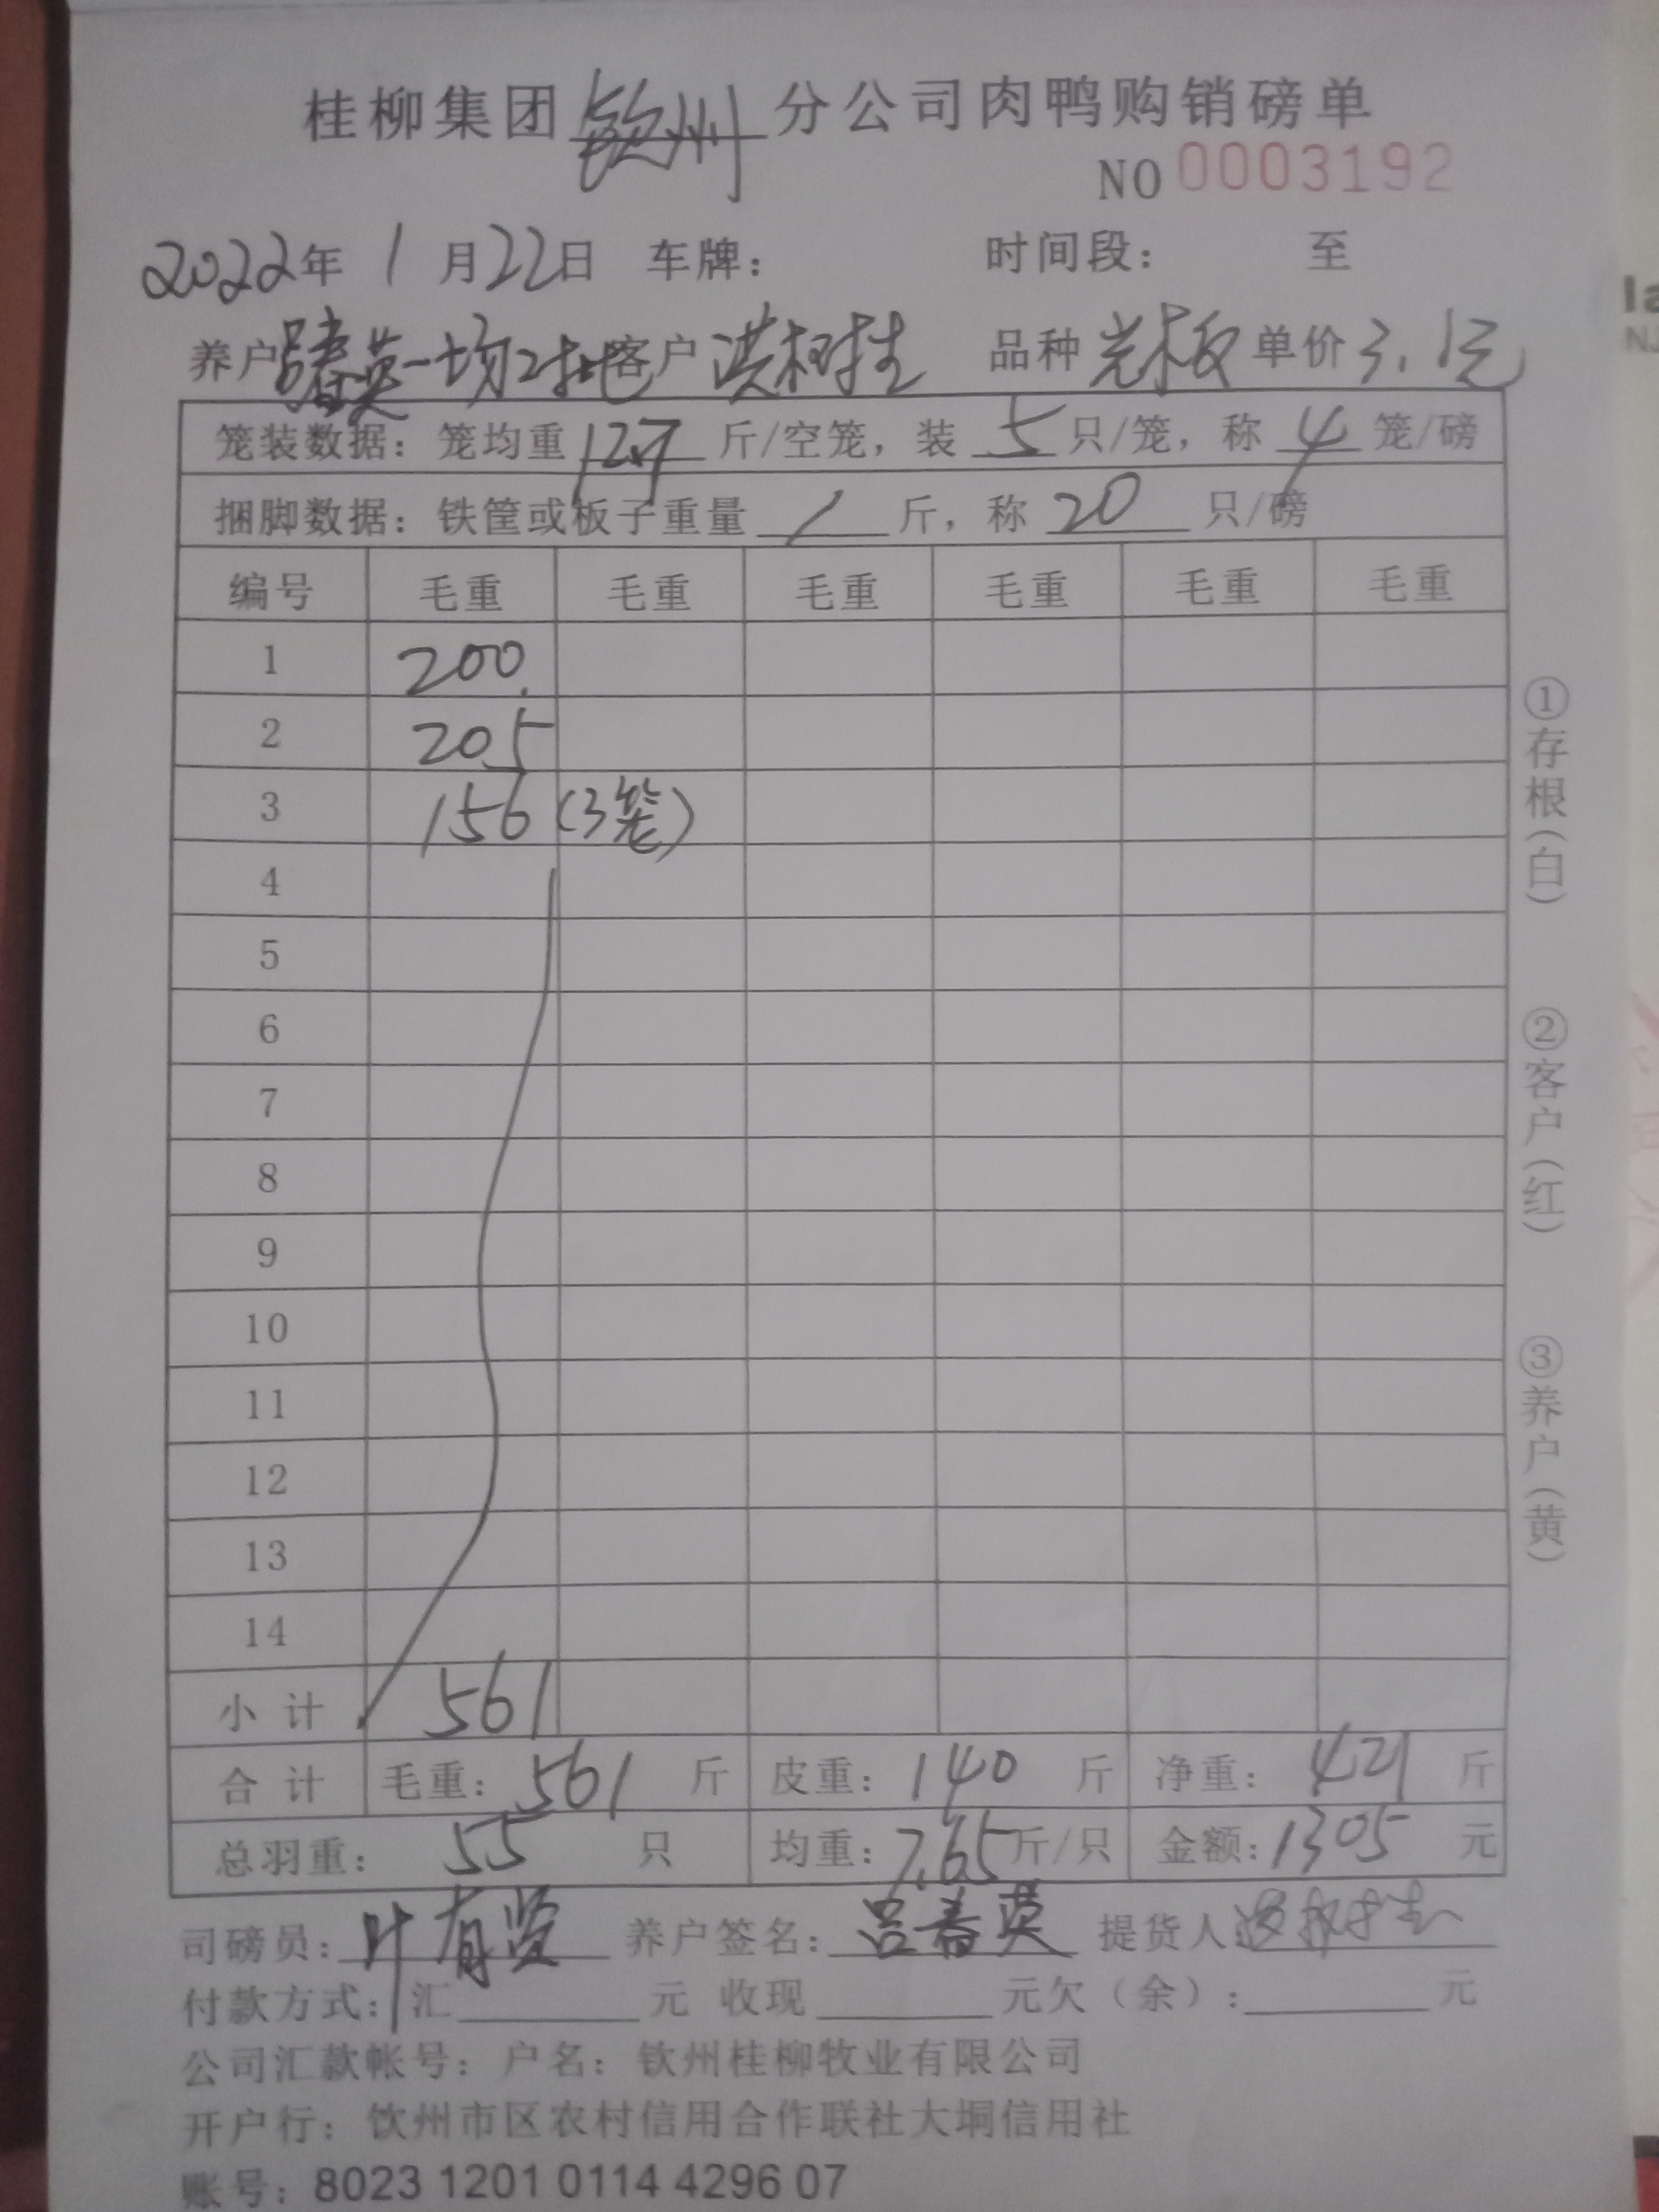 桂柳集团钦州分公司肉鸭购销磅单
NO 0003192
2022年1月22日 车牌： 时间段： 至
养户 吕春英一场2批 客户 洪树生 品种 光板 单价 3.1元
笼装数据：笼均重 12.7 斤/空笼，装 5 只/笼，称 4 笼/磅
捆脚数据：铁筐或板子重量 / 斤，称 20 只/磅
编号 毛重 毛重 毛重 毛重 毛重 毛重
1 200
2 205
3 156 (3笼)
4
5
6
7
8
9
10
11
12
13
14
小计 561
合计 毛重：561 斤 皮重：140 斤 净重：421 斤
总羽重：55 只 均重：7.65 斤/只 金额：1305 元
司磅员：叶有 养户签名：吕春英 提货人
付款方式：汇 元 收现 元欠（余）： 元
公司汇款帐号：户名：钦州桂柳牧业有限公司
开户行：钦州市区农村信用合作联社大垌信用社
账号：8023 1201 0114 4296 07
①存根（白）
②客户（红）
③养户（黄）
la
NJ